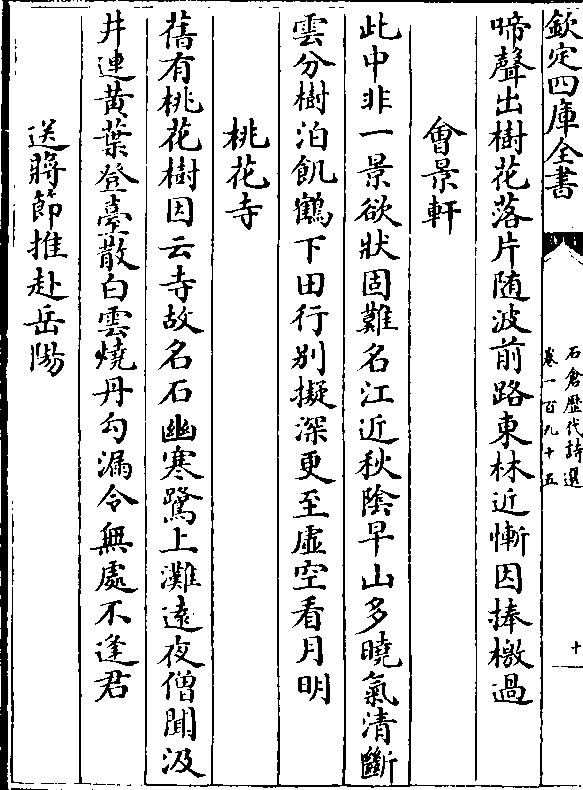 欽定四庫全書
石倉歷代詩選
卷一百九十五
十
啼聲出樹花落片随波前路東林近慚因捧檄過
會景軒
此中非一景欲狀固難名江近秋陰早山多曉氣清斷
雲分樹泊飢鶴下田行别擬深更至虛空看月明
桃花寺
舊有桃花樹因云寺故名石幽寒鷺上灘遠夜僧聞汲
井連黄葉登臺散白雲燒丹勾漏令無處不逢君
送蔣節推赴岳陽